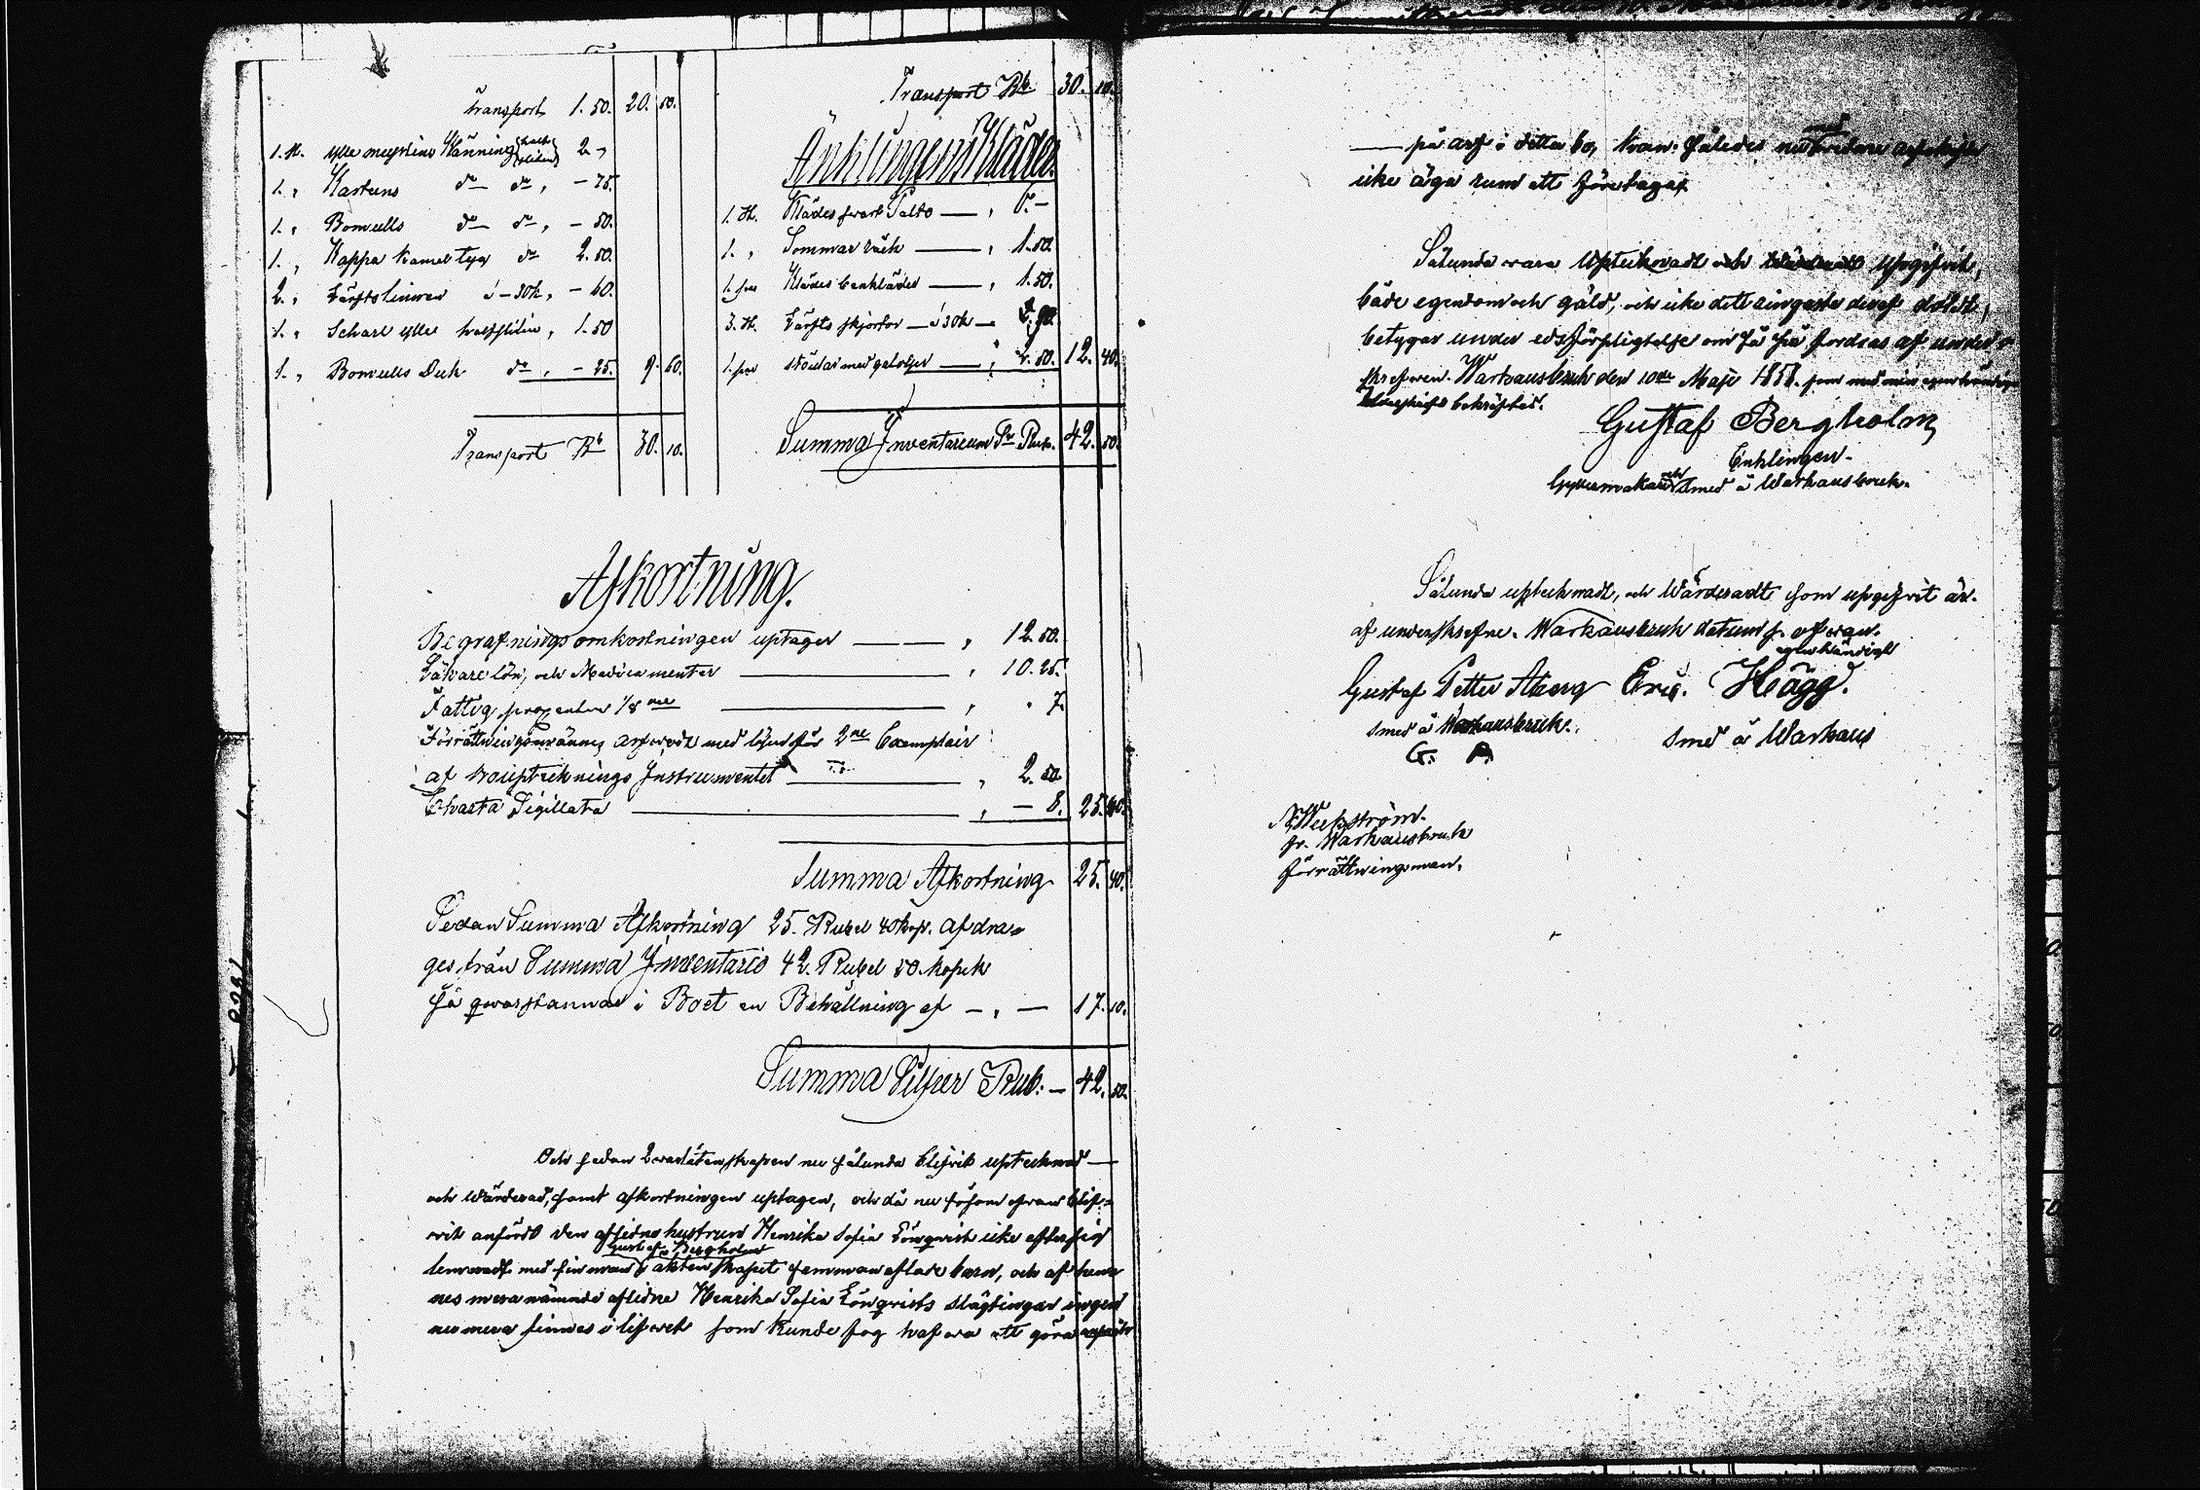 Transport 1. 50. 20. 50.
1. st. ylle muslins Klänning half sliten 2. „
1. „ Kartuns do do „ – 75.
1. „ Bomulls do do „ – 50.
1. „ Kappa kamel tyg do 2. 50.
2. „ Lärfts linnen à – 30 k „ – 60.
1. „ Scharl ylle half sliten „ 1. 50
1. „ Bomulls Duk do „ – 25. 9. 60.
Transport Rb 30. 10.
Transport Rb. 30. 10.
Änklingens Kläder.
1. st. Klädes svart Palto — „ 6. –
1. „ Sommar råck — „ 1. 50.
1. par Klädes benkläder — „ 1. 50.
3. st. Lärfts skjortor — à 30 k — „ 90.
1. par stöflar med galoscher — „ 2. 50. 12. 40.
Summa Inventareum Sr Rub. 42. 50.
Afkortning.
Begrafnings omkostningen uptages — „ 12. 50.
Läkare lön, och Medicamenter — „ 10. 25.
Fattig procenten 1/8 — „ . 7.
Förrättningsmannes arfwode med lösen för 2ne Exemplair
af bouptecknings Instrumentet — „ 2. 50.
Charta Sigillata — „ – 8. 25. 40.
Summa Afkortning 25. 40.
Sedan Summa Afkortning 25. Rubel 40 kop. afdra-
ges från Summa Inventario 42. Rubel 50. kopek
så qwarstannar i Boet en Behållning af – „ — 17. 10.
Summa Silfver Rub. — 42. 50.
Och sedan qwarlåtenskapen nu sålunda blifvit uptecknad —
och wärderad, samt afkortningen uptagen, och då nu såsom ofwan blif-
vit anfördt den aflidne hustrun Henrika Sofia Lönqvist icke efter sig
Gustaf Bergholm
lemnadt med sin man i äktenskapet sammanaflade barn, och af hen-
nes mera nämnde aflidne Henrika Sofia Lönqvists slägtingar ingen
nu mera finnes i lifvet som kunde sig hafva att göra
— på arf i detta bo, kan således
icke äga rum att företagas
Sålunda vara upteknadt och upgifvit,
både egendom och gäld, och icke det ringaste deraf döldt,
betygar under eds förpligtelse om så fordras af under-
skrefwen. Warkausbruk den 10de Maji 1858. som med min egenhändiga
bekräftas.
Gustaf Bergholm
Enklingen.
Gjutmakare och smed å Warkausbruk.
Sålunda upteknadt, och Wärderadt som upgifvit är.
af underskrefne. Warkausbruk datum s. ofwan.
egenhändigt
Gustaf Petter Åberg Eric. Hägg.
smed å Warkausbruk. smed å Warkaus
G. A.
Weckström.
fr. Warkausbruk
förrättningsman.